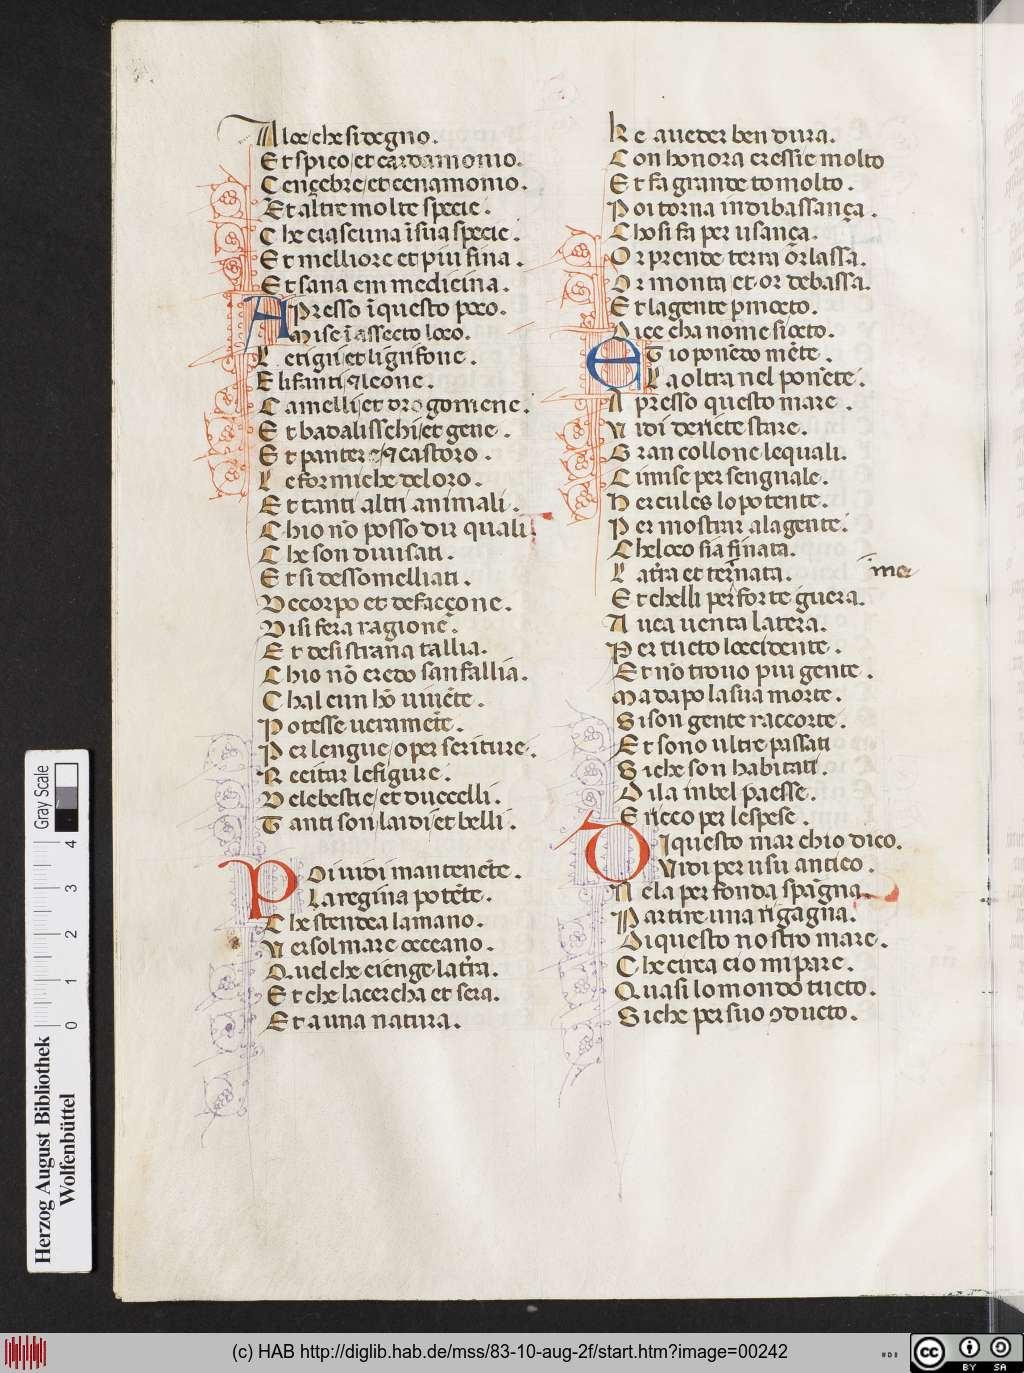 Aloe che si degno.
Et spico et cardamonio.
Cengebre et cenamonio.
Et altre molte specie.
Che ciascuna ī sua specie.
Et melliore et piu fina.
Et sana em medicina.
Apresso ī questo poco.
Mise ī assecto loco.
Le tigri et li grifone.
Elifanti ⁊ leone.
Camelli et drogomene.
Et badalisschi et gene.
Et pantere ⁊ castoro.
Le formiche deloro.
Et tanti altri animali.
Chio nō posso dir quali
Che son diuisati.
Et si dessomelliati.
De corpo et de faccone.
Di si fera ragione.
Et de si strana tallia.
Chio nō credo san fallia.
Chal cun hō uiuēte.
Potesse ueramēte.
Per lengue o per scriture.
Recitar le figure.
De le bestie et duccelli.
Tanti son laidi et belli.
Poi uidi mantenēte.
La regina potēte.
Che stendea la mano.
Uersol mare occeano.
Quel che cienge la tr̄a.
Et che la cercha et sera.
Et a una natura.
Ke a ueder ben dura.
Con honora cressie molto
Et fa grande tomolto.
Poi torna in dibassança.
Cho si fa per usança.
Or prende terra ōr lassa.
Or monta et or debassa.
Et la gente p mocto.
Dice cha nome fiocto.
Et io ponēdo mēte.
La oltra nel ponēte.
Apresso questo mare.
Uidi deriete stare.
Gran collone le quali.
Ci mise per sengnale.
Hercules lo potente.
Per mostrar ala gente.
Che loco sia finata.
La tr̄a et ter̄nata.
ine
Et chelli per forte guera.
Auea uenta la tera.
Per tucto loccidente.
Et nō trouo piu gente.
Ma dapo la sua morte.
Si son gente raccorte.
Et sono ultre passati
Si che son habitati.
Di la in bel paesse.
E ricco per le spese.
Di questo mar chio dico.
Uidi per usu antico.
Ne la perfonda spagna
Partire una rigagna.
Di questo nostro mare.
Che cerca cio mi pare.
Quasi lo mondo tucto.
Si che per suo ↄducto.
Herzog August Bibliothek
Wolfenbüttel
0 1 2 3 4
Gray Scale
(c) HAB http://diglib.hab.de/mss/83-10-aug-2f/start.htm?image=00242
cc BY SA